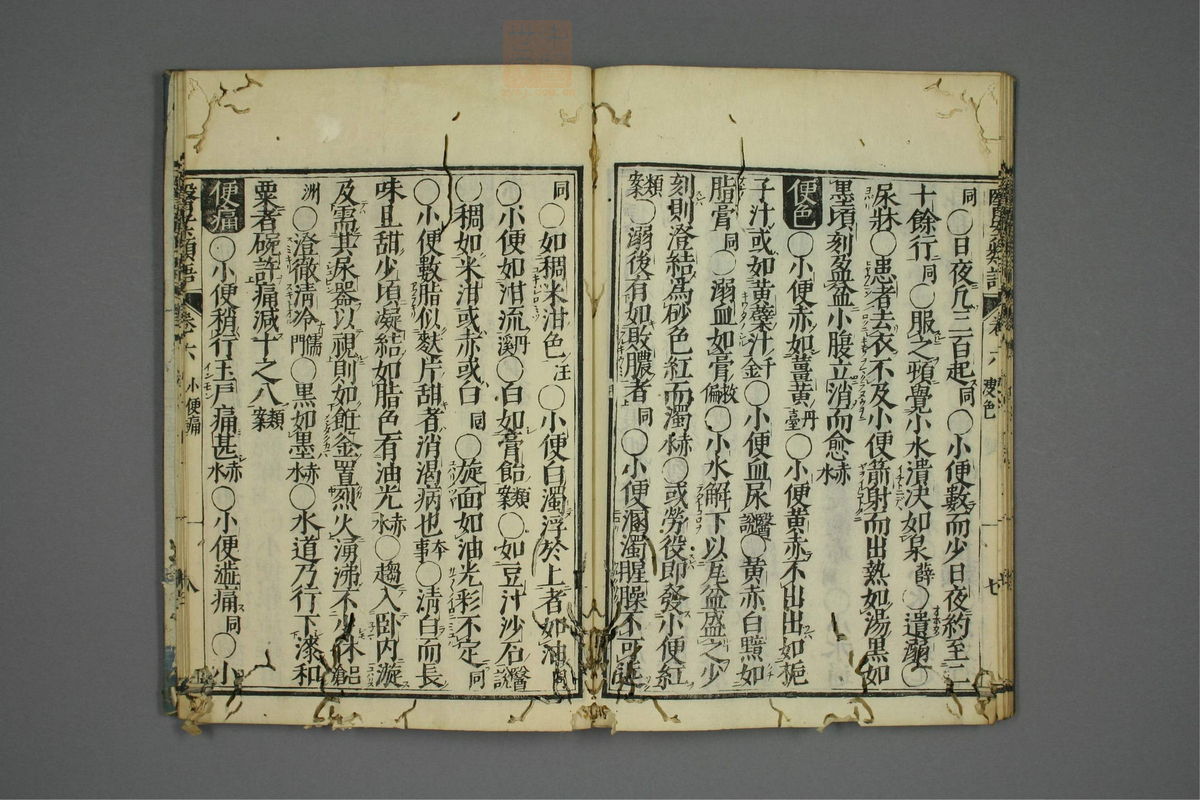 同○日夜凢三百起同○小便數而少日夜約至二
十餘行同○服之頓覺小水潰決如泉薛○遺溺○
尿牀○患者去衣不及小便箭射而出熱如湯黒如
墨頃刻盈盆小腹立消而愈赤水
便色○小便赤如薑黄丹臺○小便黄赤不出出如梔
子汁或如黄蘗汁千金○小便血尿醫説○黄赤白黯如
脂膏同○溺血如膏救偏○小水解下以瓦盆盛之少
刻則澄結為砂色紅而濁赤水○或勞役即發小便紅
類案○溺後有如敗膿者同○小便溷濁腥臊不可
同○如稠米泔色汪○小便白濁浮於上者如油同
○小便如泔流丹溪○白如膏飴類案○如豆汁沙石醫説
○稠如米泔或赤或白同○旋面如油光彩不定同
○小便數脂似麩片甜者消渇病也本事○清白而長
味且甜少頃凝結如脂色有油光赤水○趨入卧内漩
及需其尿器以視則如餠釜置烈火湧沸不少休呂滄
洲○澄徹清冷儒門○黒如墨赤水○水道乃行下滚和
粟者碗許痛減十之八類案
便痛○小便稍行玉戸痛甚赤水○小便澁痛同○小
卷六 小便痛
八
卷六 溲色
七